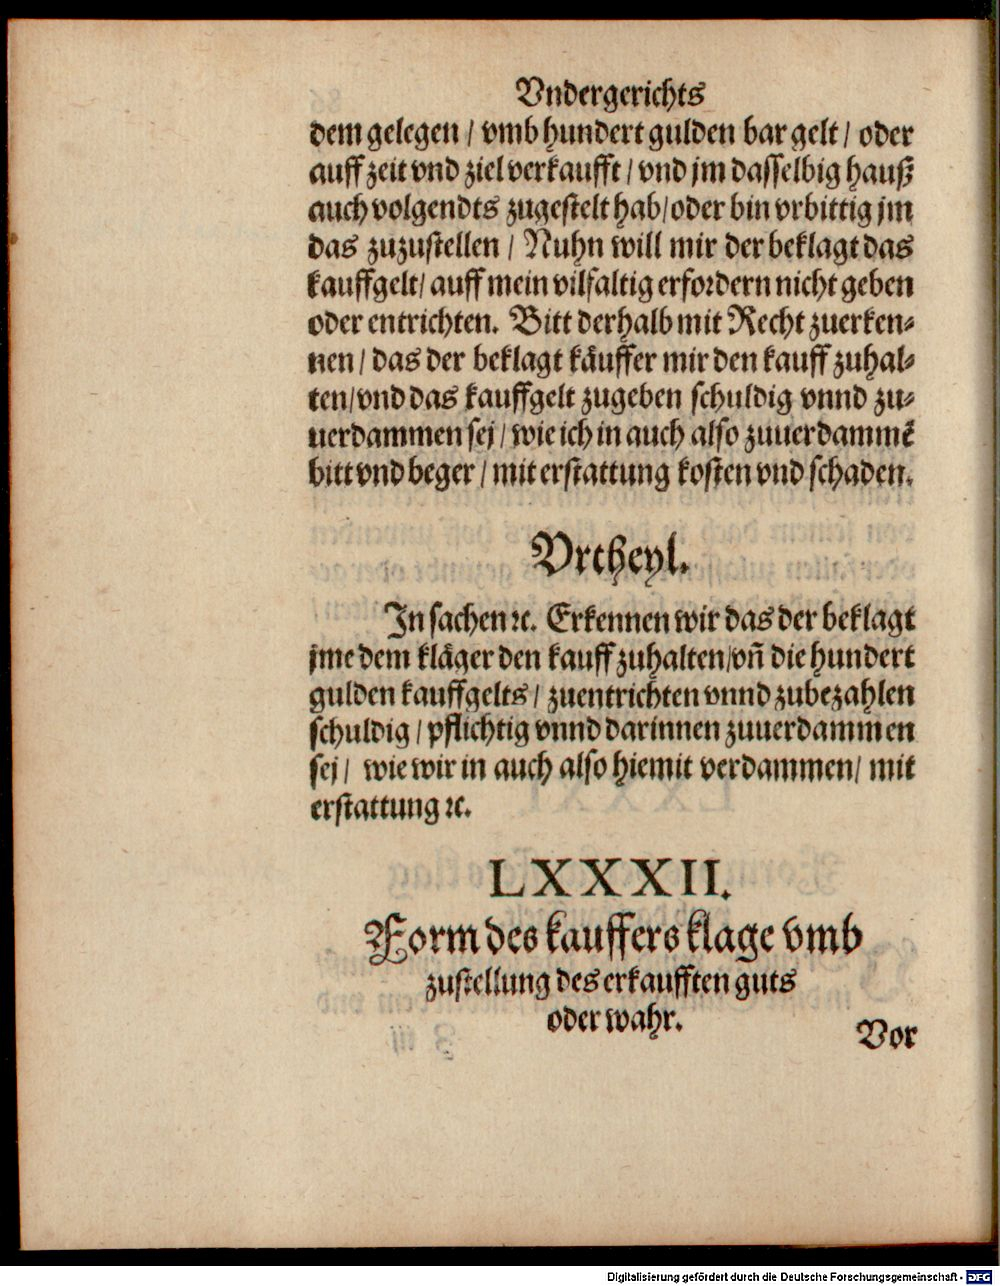 Vndergerichts
dem gelegen / vmb hundert gulden bar gelt / oder
auff zeit vnd ziel verkaufft / vnd jm dasselbig hauß
auch volgendts zugestelt hab / oder bin vrbittig jm
das zuzustellen / Nuhn will mir der beklagt das
kauffgelt / auff mein vilfaltig erfordern nicht geben
oder entrichten. Bitt derhalb mit Recht zuerken⸗
nen / das der beklagt käuffer mir den kauff zuhal⸗
ten / vnd das kauffgelt zugeben schuldig vnnd zu⸗
uerdammen sej / wie ich in auch also zuuerdammẽ
bitt vnd beger / mit erstattung kosten vnd schaden.
Vrtheyl.
In sachen ꝛc. Erkennen wir das der beklagt
jme dem kläger den kauff zuhalten / vñ die hundert
gulden kauffgelts / zuentrichten vnnd zubezahlen
schuldig / pflichtig vnnd darinnen zuuerdammen
sej / wie wir in auch also hiemit verdammen / mit
erstattung ꝛc.
LXXXII.
Form des kauffers klage vmb
zustellung des erkaufften guts
oder wahr.
Vor
Digitalisierung gefördert durch die Deutsche Forschungsgemeinschaft - DFG